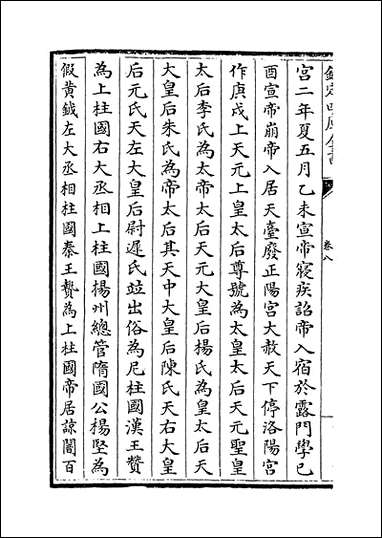 欽定四庫全書
卷八
宫二年夏五月乙未宣帝寢疾詔帝入宿於露門學己
酉宣帝崩帝入居天臺廢正陽宫大赦天下停洛陽宫
作庚戌上天元上皇太后尊號為太皇太后天元聖皇
太后李氏為太帝太后天元大皇后楊氏為皇太后天
大皇后朱氏為帝太后其天中大皇后陳氏天右大皇
后元氏天左大皇后尉遲氏竝出俗為尼柱國漢王贊
為上柱國右大丞相上柱國楊州總管隋國公楊堅為
假黄鉞左大丞相柱國秦王贄為上柱國帝居諒闇百